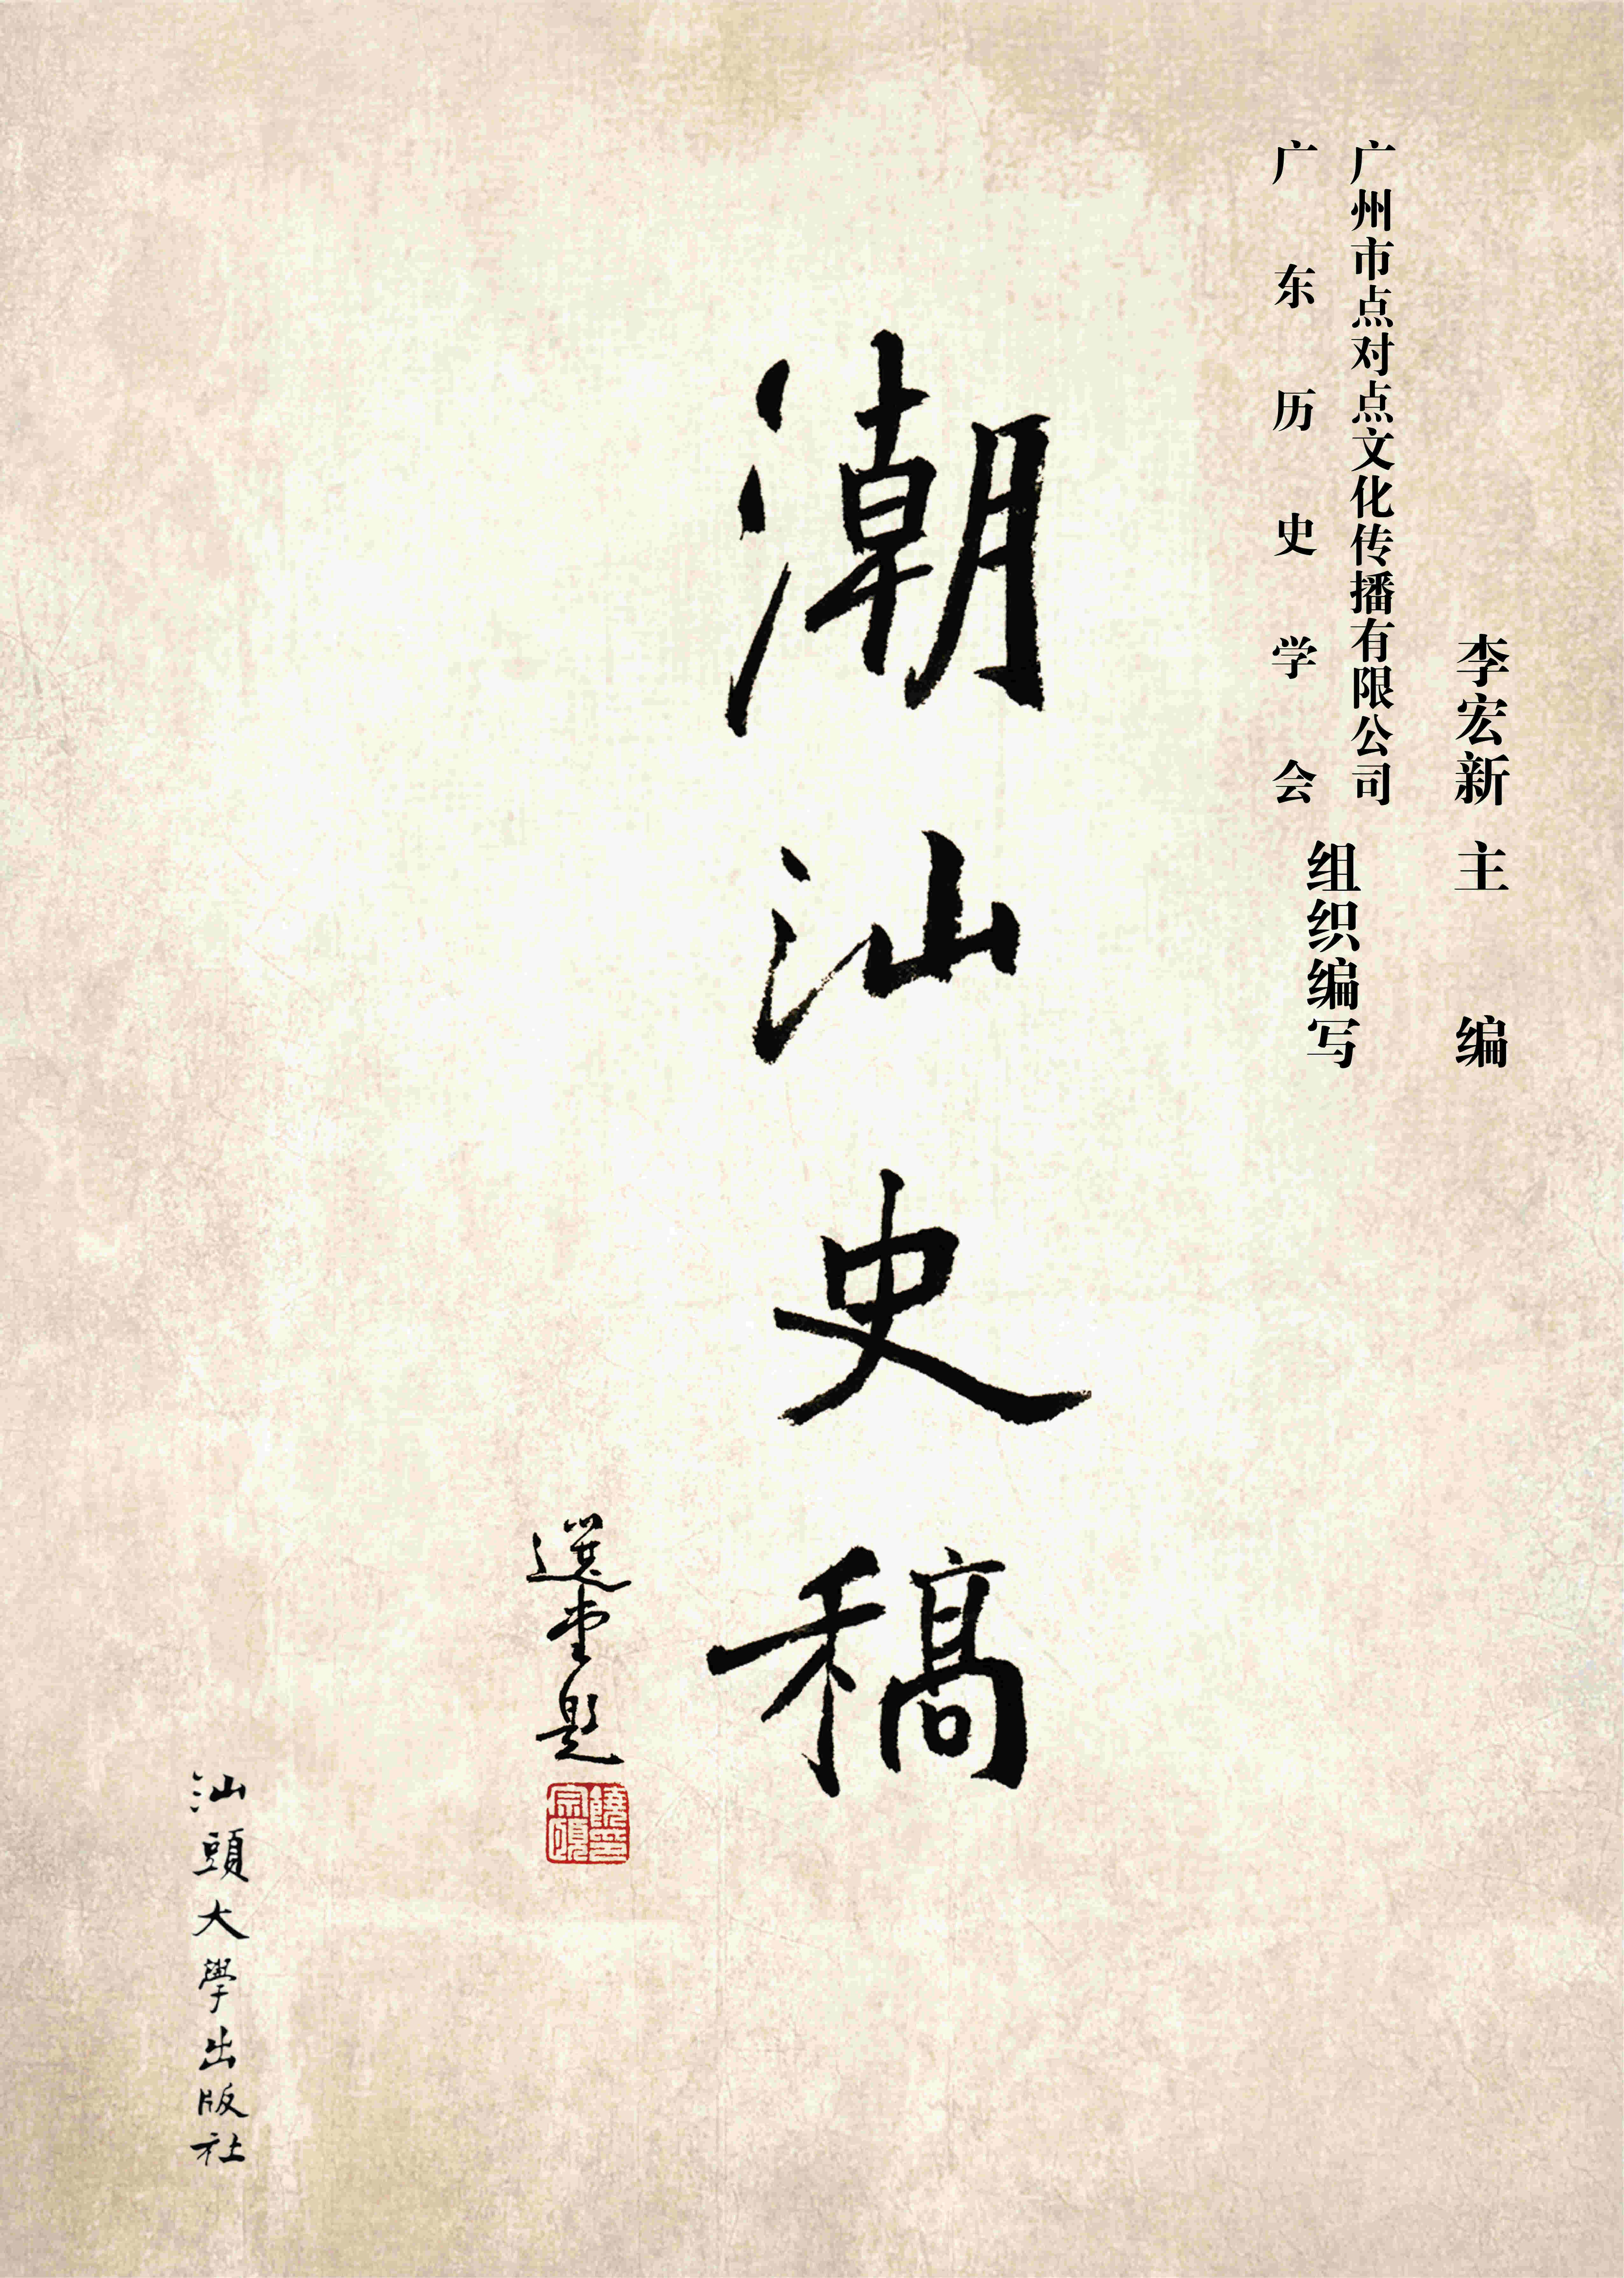 李宏新 主 编
广州市点对点文化传播有限公司
广东历史学会
组织编写
潮汕史稿
選堂題
饒宗頤印
汕頭大學出版社